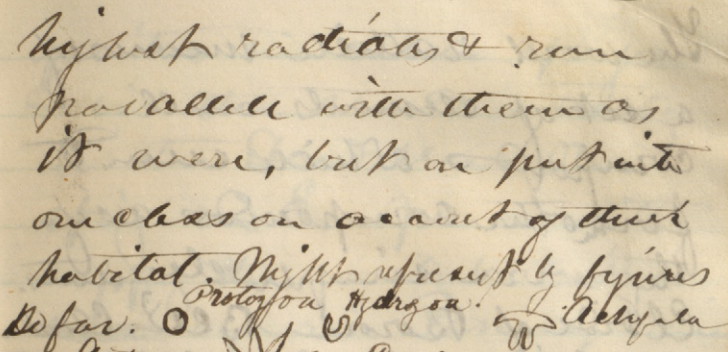 highest radiates & run
parallell with them as
it were, but are put into
one class on account of their
habitat. Might represent by figures
Protozoa Hydrozoa
So far. Acalepha